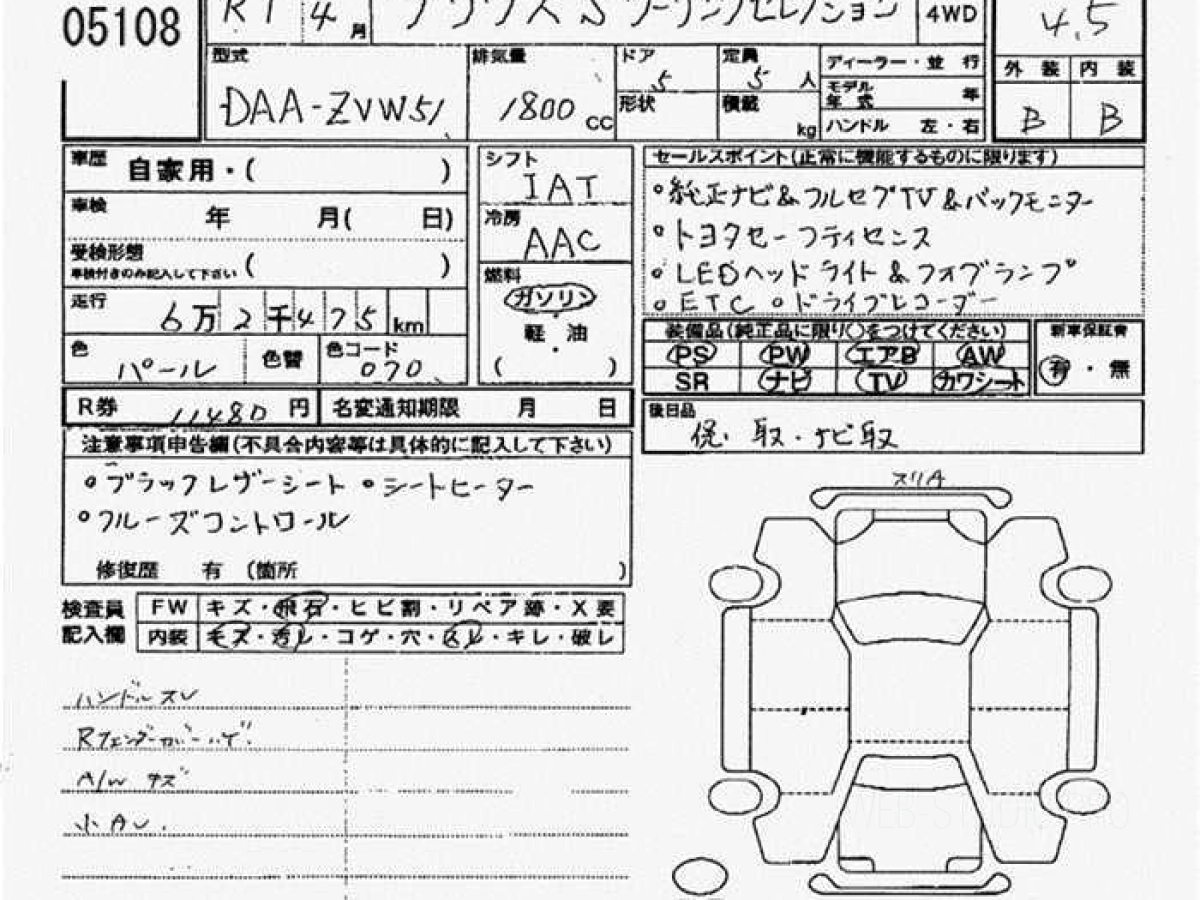 05108
R1 4月 プリウス S ツーリングセレクション 4WD 4.5
型式 DAA-ZVW51
排気量 1800 cc
ドア 5
定員 5 人
形状
積載 kg
ディーラー・並 行
モデル年式 年
ハンドル 左・右
外 装 内 装
B B
車歴 自家用・( )
車検 年 月( 日)
受検形態 ( )
車検付きのみ記入して下さい
走行 6万2千475km
色 パール 色替 色コード 070
シフト IAT
冷房 AAC
燃料 ガソリン
・
軽・油
( )
セールスポイント(正常に機能するものに限ります)
°純正ナビ&フルセグTV&バックモニター
°トヨタセーフティセンス
°LEDヘッドライト&フォグランプ
°ETC °ドライブレコーダー
装備品(純正品に限り○をつけてください)
PS PW エアB AW
SR ナビ TV カワシート
新車保証書
有・無
R券 11480 円 名変通知期限 月 日
後日品
保.取.ナビ取
注意事項申告欄(不具合内容等は具体的に記入して下さい)
°ブラックレザーシート °シートヒーター
°クルーズコントロール
修復歴 有 (箇所 )
検査員記入欄
FW キズ・飛石・ヒビ割・リペア跡・X要
内装 キズ・汚レ・コゲ・穴・スレ・キレ・破レ
ハンドルスレ
Rフェンダーカバーハゲ.
A/W キズ
小AU.
スリA